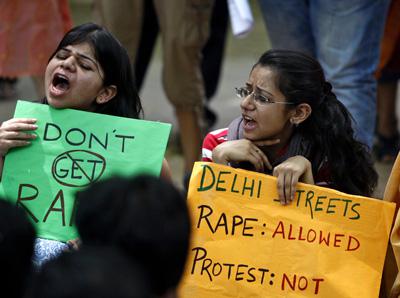 DON'T
GET
DELHI STREETS
RAPE: ALLOWED
PROTEST: NOT